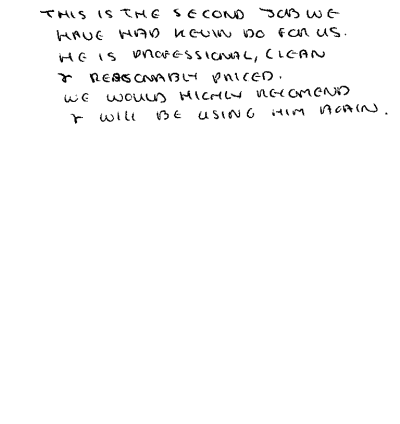 THIS IS THE SECOND JOB WE
HAVE HAD KEVIN DO FOR US.
HE IS PROFESSIONAL, CLEAN
& REASONABLY PRICED.
WE WOULD HIGHLY RECOMEND
& WILL BE USING HIM AGAIN.